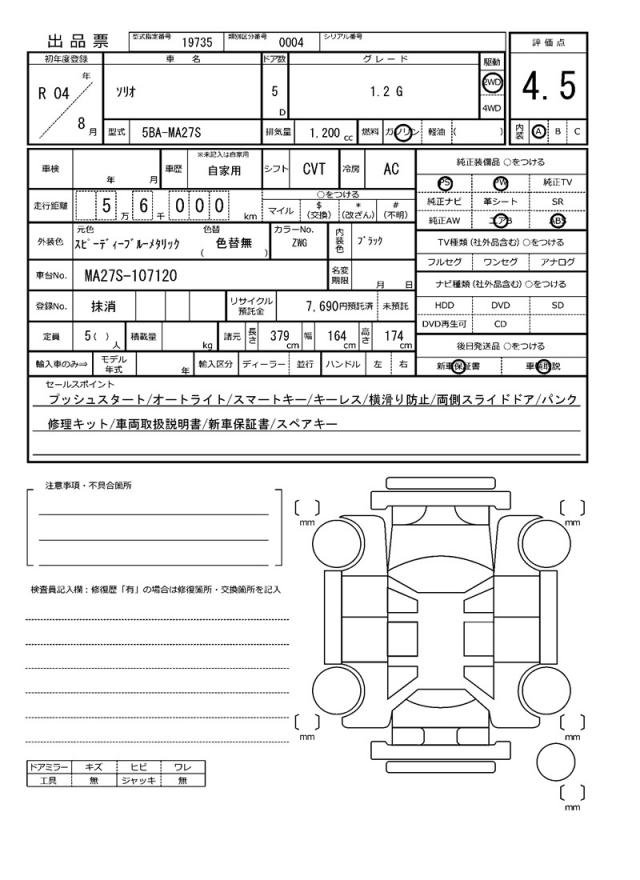 出品票 型式指定番号 19735 類別区分番号 0004 シリアル番号
初年度登録 車名 ドア数 グレード 駆動 評価点
R 04 年 8 月 ソリオ 5 D 1.2 G 2WD 4WD 4.5
型式 5BA-MA27S 排気量 1.200 cc 燃料 ガソリン 軽油 ( ) 内装 A B C
車検 年 月 車歴 ※未記入は自家用 自家用 シフト CVT 冷房 AC 純正装備品 ○をつける
PS PW 純正TV
走行距離 5 万 6 千 0 0 0 km ○をつける
マイル $ (交換) * (改ざん) # (不明)
純正ナビ 革シート SR
純正AW エアB ABS
外装色 元色 スピーディーブルーメタリック 色替 ( 色替無 ) カラーNo. ZWG 内装色 ブラック
TV種類 (社外品含む) ○をつける
フルセグ ワンセグ アナログ
車台No. MA27S-107120 名変期限 月 日
ナビ種類 (社外品含む) ○をつける
登録No. 抹消 リサイクル預託金 7,690円預託済 未預託
HDD DVD SD
DVD再生可 CD
定員 5( ) 人 積載量 kg 諸元 長さ 379 cm 幅 164 cm 高さ 174 cm
後日発送品 ○をつける
輸入車のみ⇒ モデル年式 年 輸入区分 ディーラー 並行 ハンドル 左 右
新車保証書 車輌取説
セールスポイント
プッシュスタート/オートライト/スマートキー/キーレス/横滑り防止/両側スライドドア/パンク
修理キット/車両取扱説明書/新車保証書/スペアキー
注意事項・不具合箇所
mm
mm
検査員記入欄:修復歴「有」の場合は修復箇所・交換箇所を記入
mm
mm
ドアミラー キズ ヒビ ワレ
工具 無 ジャッキ 無
mm